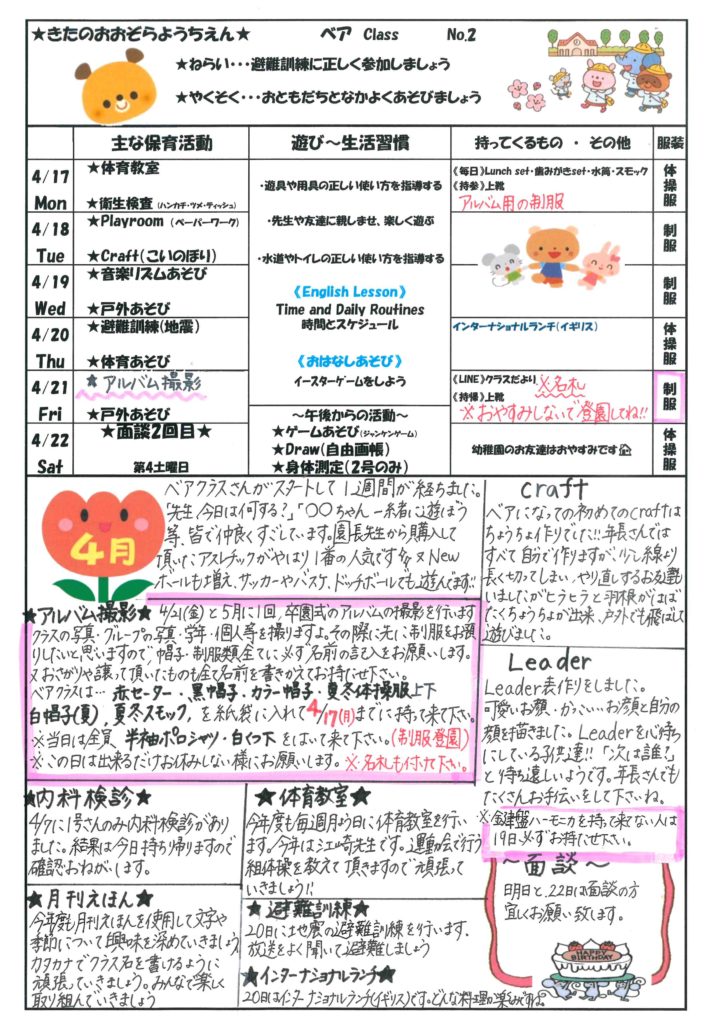 ★きたのおおぞらようちえん★ ベア Class No.2
★ねらい・・・避難訓練に正しく参加しましょう
★やくそく・・・おともだちとなかよくあそびましょう
主な保育活動 遊び～生活習慣 持ってくるもの ・ その他 服装
4/17 Mon
★体育教室
★衛生検査(ハンカチ・ツメ・ティッシュ)
《毎日》Lunch set・歯みがきset・水筒・スモック
《持参》上靴
アルバム用の制服
体操服
4/18 Tue
★Playroom (ペーパーワーク)
★Craft(こいのぼり)
制服
4/19 Wed
★音楽リズムあそび
★戸外あそび
制服
4/20 Thu
★避難訓練(地震)
★体育あそび
インターナショナルランチ(イギリス)
体操服
4/21 Fri
★アルバム撮影
★戸外あそび
《LINE》クラスだより ※名札
《持帰》上靴
※おやすみしないで登園してね!!
制服
4/22 Sat
★面談2回目★
第4土曜日
幼稚園のお友達はおやすみです
体操服
・遊具や用具の正しい使い方を指導する
・先生や友達に親しませ、楽しく遊ぶ
・水道やトイレの正しい使い方を指導する
《English Lesson》
Time and Daily Routines
時間とスケジュール
《おはなしあそび》
イースターゲームをしよう
～午後からの活動～
★ゲームあそび(ジャンケンゲーム)
★Draw(自由画帳)
★身体測定(2号のみ)
4月
ベアクラスさんがスタートして1週間が経ちました。
「先生、今日は何する?」「○○ちゃん一緒に遊ぼう
等、皆で仲良くすごしています。園長先生から購入して
頂いたアスレチックがやはり1番の人気です 又New
ボールも増え、サッカーやバスケ、ドッチボールでも遊んでます!!
★アルバム撮影★ 4/21(金)と5月に1回、卒園式のアルバムの撮影を行います
クラスの写真・グループの写真・学年・個人等を撮りますよ。その際に先に制服をお預
りしたいと思いますので、帽子・制服類全てに必ず名前の記入をお願いします。
又おさがりや譲って頂いたものも全て名前を書きかえてお持ち下さい。
ベアクラスは… 赤セーター・黒帽子・カラー帽子・夏冬体操服上下
白帽子(夏)、夏冬スモック、を紙袋に入れて4/17(月)までに持って来て下さい。
※当日は全員、半袖ポロシャツ・白くつ下をはいて来て下さい。(制服登園)
※この日は出来るだけお休みしない様にお願いします。※名札も付けて下さい。
craft
ベアになっての初めてのcraftは
ちょうちょ作りでした!!年長さんでは
すべて自分で作りますが、少し線より
長く切ってしまい、やり直しするお友達も
いましたがヒラヒラと羽根がはば
たくちょうちょが出来、戸外でも飛ばして
遊びました。
Leader
Leader表作りをしました。
可愛いお顔・かっこいいお顔と自分の
顔を描きました。Leaderを心待ち
にしている子供達!!「次は誰?」
と待ち遠しいようです。年長さんでも
たくさんお手伝いをして下さいね。
※鍵盤ハーモニカを持って来てない人は
19日必ずお持ち下さい。
～面談～
明日と、22日は面談の方
宜しくお願い致します。
HAPPY BIRTHDAY
★内科検診★
4/7に1号さんのみ内科検診があり
ました。結果は今日持ち帰りますので
確認おねがいします。
★月刊えほん★
今年度も月刊えほんを使用して文字や
季節について興味を深めていきましょう
カタカナでクラス名を書けるように
頑張っていきましょう。みんなで楽しく
取り組んでいきましょう
★体育教室★
今年度も毎週月よう日に体育教室を行い
ます。今年は江崎先生です。運動会で行う
組体操を教えて頂きますので頑張って
いきましょう!!
★避難訓練★
20日に地震の避難訓練を行います。
放送をよく聞いて避難しましょう
★インターナショナルランチ★
20日はインターナショナルランチ(イギリス)です。どんな料理か楽しみですね。